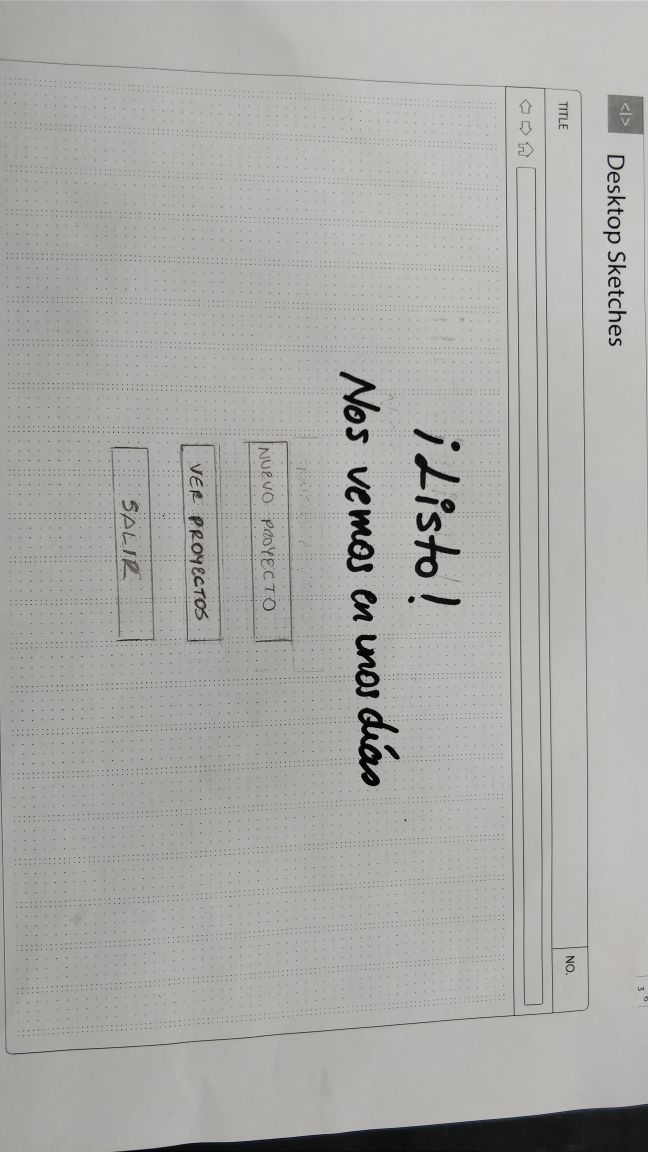 <|>
Desktop Sketches
TITLE
NO.
¡Listo!
Nos vemos en unos días
NUEVO PROYECTO
VER PROYECTOS
SALIR